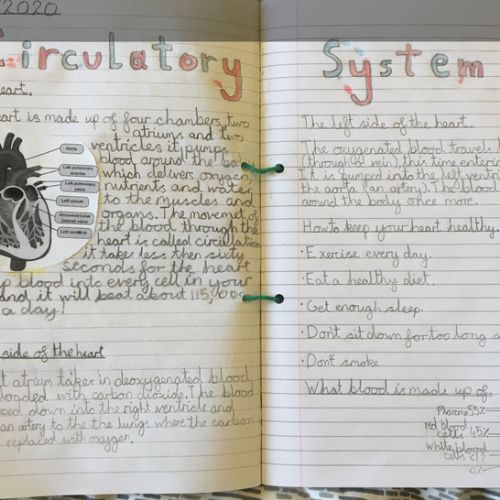 /2020
Circulatory System
heart.
heart is made up of four chambers, two
atriums and two
ventricles it pumps
blood around the bo
which delivers oxygen,
nutrients and water
to the muscles and
organs. The movemet of
the blood through the
heart is called circulation
it takes less then sixty
seconds for the heart
p blood into every cell in your
and it will beat about 115,000
a day!
Aorta
Left pulmonary arteries
Left pulmonary veins
Left atrium
Atrioventricular (mitral) valve
Left ventricle
side of the heart
t atrium takes in deoxygenated blood
loaded with carbon dioxide. The blood
zed down into the right ventricle and
an artery to the the lungs where the carbon
replaced with oxygen.
The left side of the heart.
The oxygenated blood travels
(through a vein), this time enteri
It is pumped into the left ventri
the aorta (an artery). The blood
around the body once more.
How to keep your heart healthy.
· Exercise every day.
· Eat a healthy diet.
· Get enough sleep.
· Dont sit down for too long a
· Dont smoke
What blood is made up of.
Plasma 55%
red blood
cells 45%
white blood
cells <1%
<1%